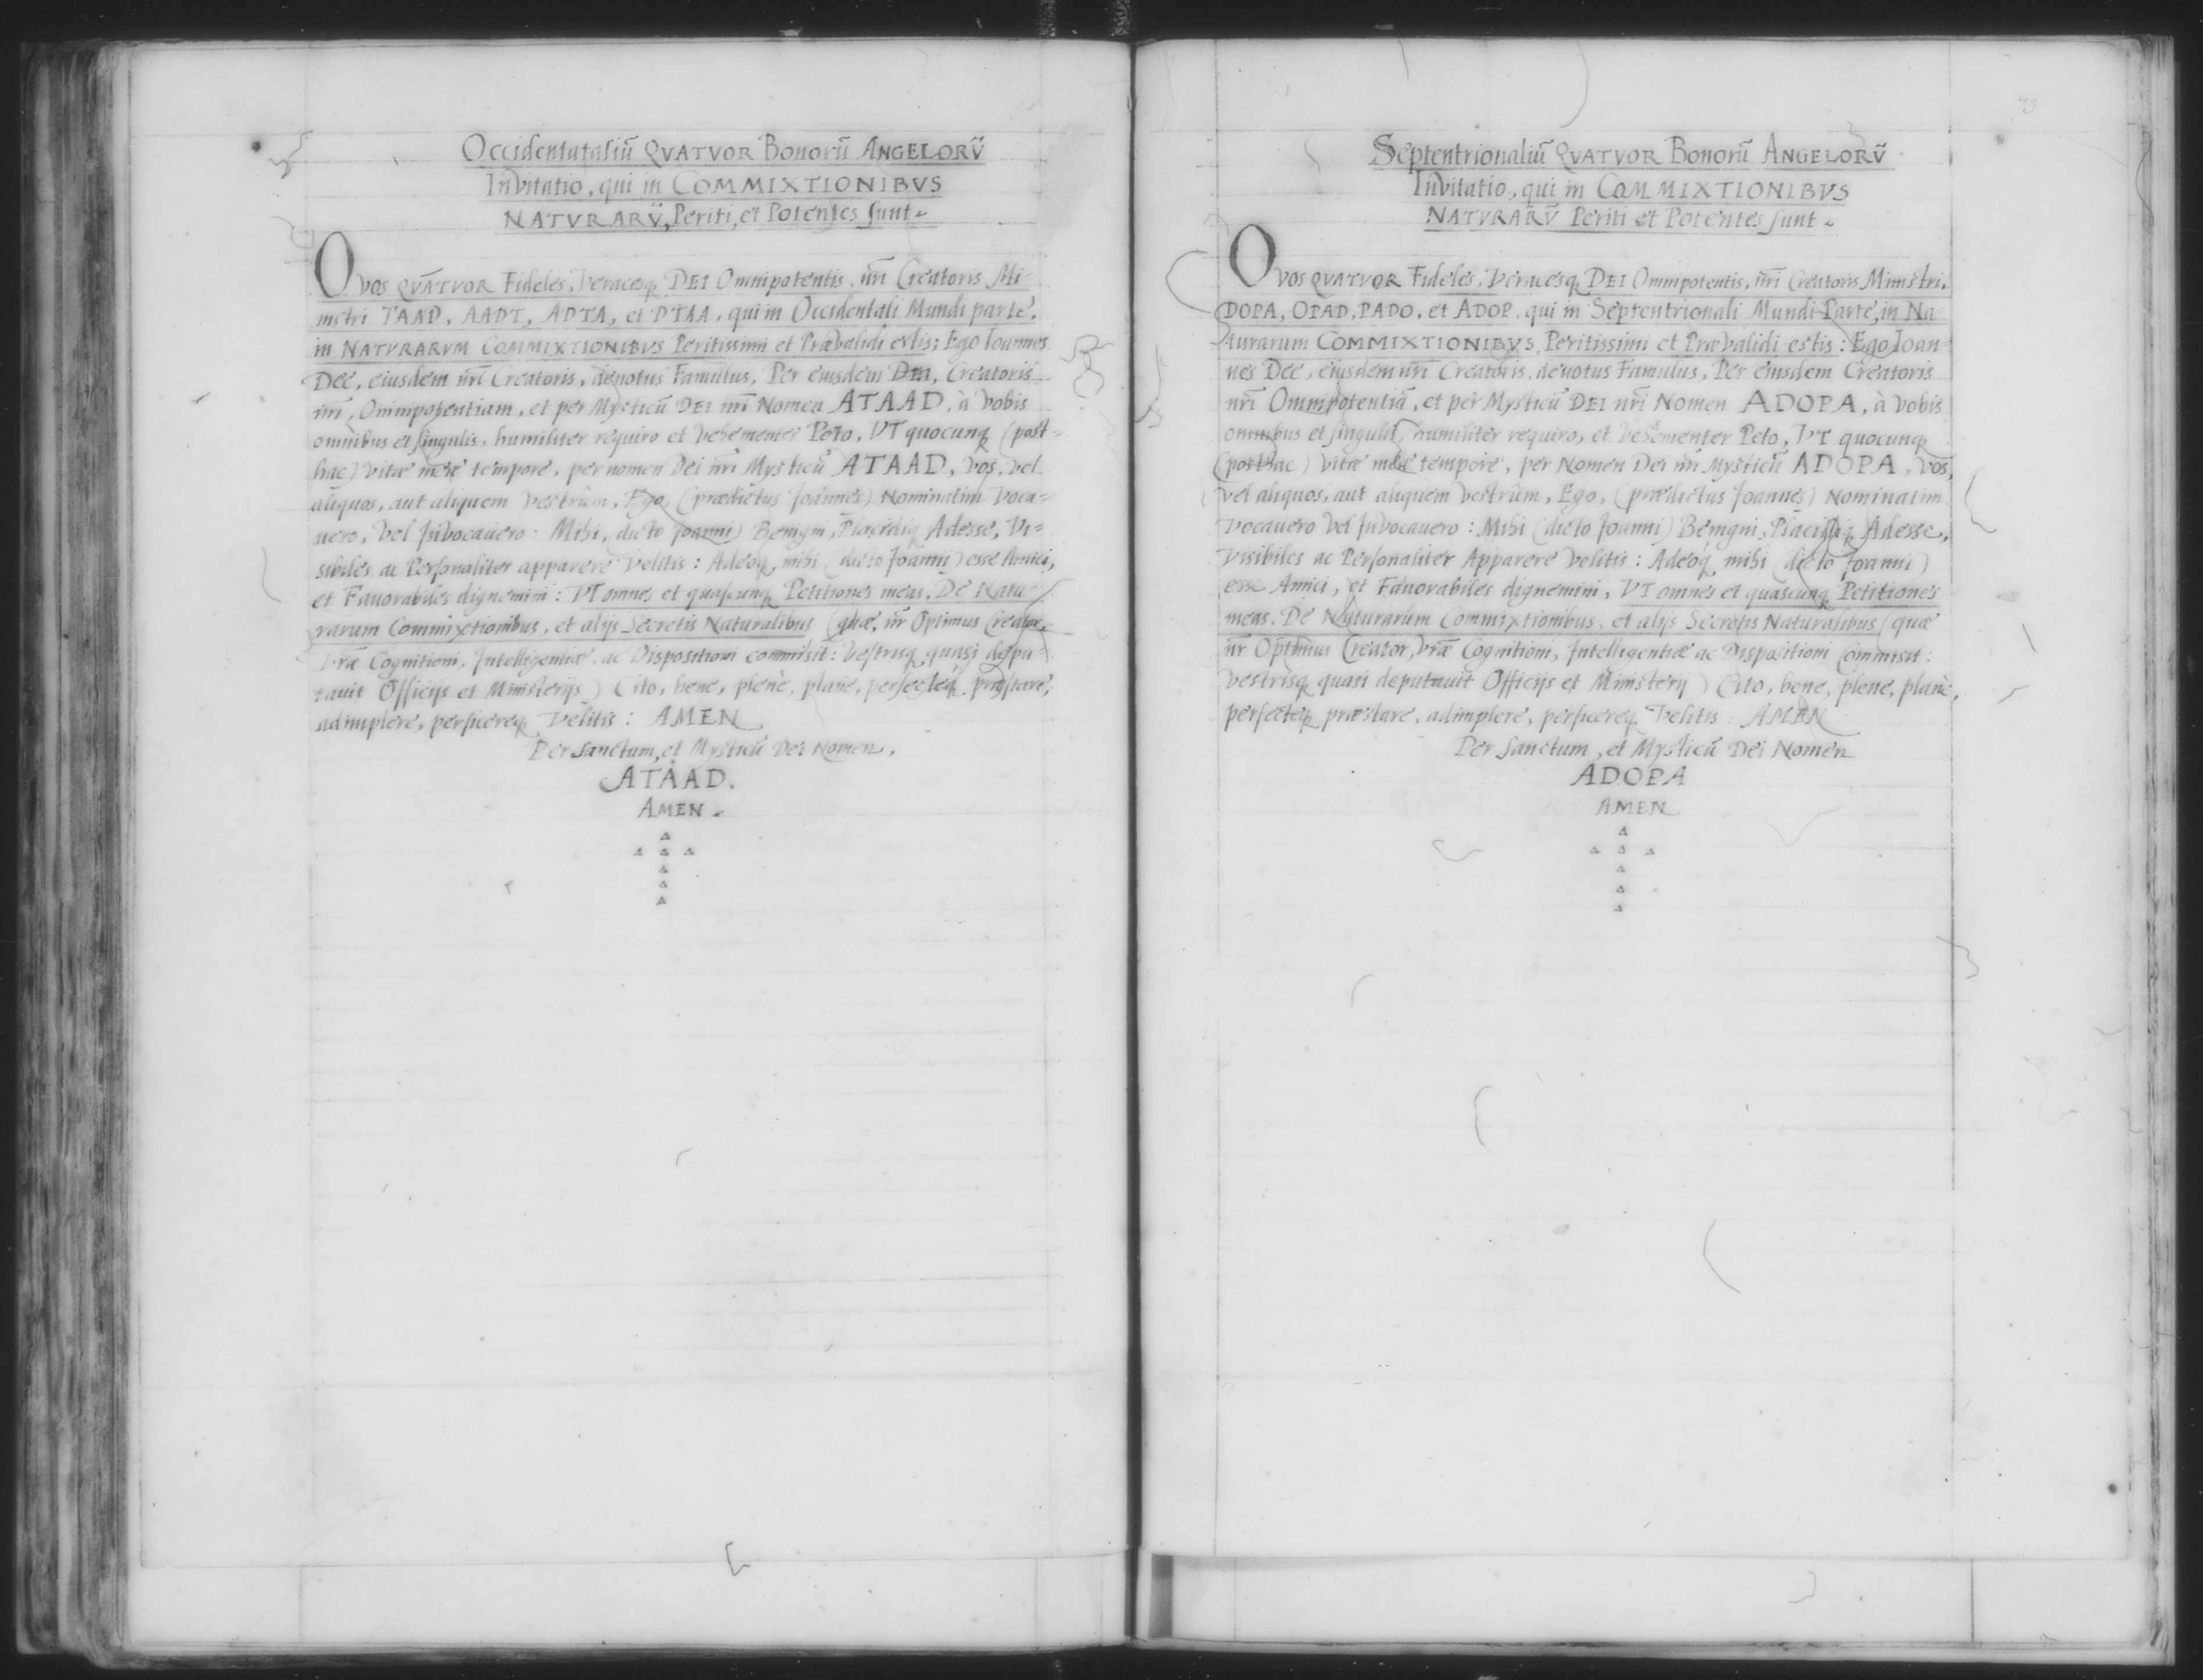 Occidentataliū QVATVOR Bonorū ANGELORV̄
Invitatio, qui in COMMIXTIONIBVS
NATVRARV̄, Periti, et Potentes sunt.
O vos QVATVOR Fideles, veracesq DEI Omnipotentis, nr̄i Creatoris Mi=
nistri TAAD, AADT, ADTA, et DTAA, qui in Occidentali Mundi parte,
in NATVRARVM COMMIXTIONIBVS Peritissimi et Prævalidi estis; Ego Ioannes
Dee, eiusdem nr̄i Creatoris, devotus Famulus, Per eiusdem DEI, Creatoris
nr̄i, Omnipotentiam, et per Mysticū DEI nr̄i Nomen ATAAD, à vobis
omnibus et singulis, humiliter requiro et vehementer Peto, VT quocunq (post=
hac) vitæ meæ tempore, per nomen Dei nr̄i Mysticū ATAAD, vos, vel
aliquos, aut aliquem vestrûm, Ego, (prædictus Joannes) Nominatim voca=
uero, vel Invocavero: Mihi, (dicto Joanni) Benigni, Placidiq Adesse, Vi=
sibiles ac Personaliter apparere velitis: Adeoq, mihi (dicto Joanni) esse Amici,
et Favorabiles dignemini: VT omnes et quascunq Petitiones meas, De Natu=
rarum Commixtionibus, et alijs Secretis Naturalibus (quæ, nr̄ Optimus Creator,
vr̄æ Cognitioni, Intelligentiæ, ac Dispositioni commisit: vestrisq quasi depu=
tauit Officijs et Ministerijs) Cito, bene, plenè, planè, perfecteq præstare,
adimplere, perficereq velitis: AMEN
Per Sanctum, et Mysticū Dei Nomen,
ATAAD.
AMEN.
73
Septentrionaliū QVATVOR Bonorū ANGELORV̄
Invitatio, qui in COMMIXTIONIBVS
NATVRARV̄ Periti et Potentes sunt.
O vos QVATVOR Fideles, Veracesq DEI Omnipotentis, nr̄i Creatoris Ministri,
DOPA, OPAD, PADO, et ADOP, qui in Septentrionali Mundi Parte, in Na=
turarum COMMIXTIONIBVS, Peritissimi et Prævalidi estis: Ego Ioan
nes Dee, eiusdem nr̄i Creatoris, devotus Famulus, Per eiusdem Creatoris
nr̄i Omnipotentiā, et per Mysticū DEI nr̄i Nomen ADOPA, à vobis
omnibus et singulis, humiliter requiro, et Vehementer Peto, VT quocunq
(posthac) vitæ meæ tempore, per Nomen Dei nr̄i Mysticū ADOPA, vos,
vel aliquos, aut aliquem vestrûm, Ego, (prædictus Joannes) Nominatim
vocavero vel Invocavero: Mihi (dicto Joanni) Benigni, Placidiq Adesse,
Visibiles ac Personaliter Apparere velitis: Adeoq mihi (dicto Joanni)
esse Amici, et Favorabiles dignemini, VT omnes et quascunq Petitiones
meas, De Naturarum Commixtionibus, et alijs Secretis Naturalibus (quæ
nr̄ Optimus Creator, vr̄æ Cognitioni, Intelligentiæ ac Dispositioni Commisit:
vestrisq quasi deputauit Officijs et Ministerij) Cito, bene, plene, planè,
perfecteq præstare, adimplere, perficereq velitis: AMEN
Per Sanctum, et Mysticū Dei Nomen
ADOPA
AMEN